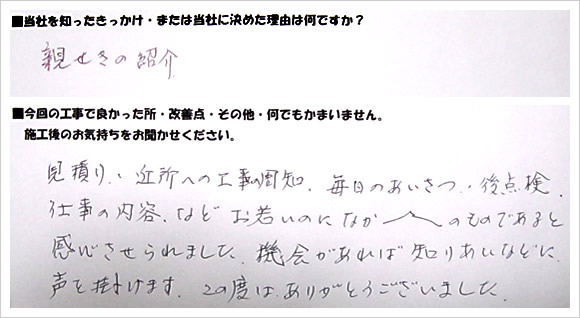 ■当社を知ったきっかけ・または当社に決めた理由は何ですか？
親せきの紹介
■今回の工事で良かった所・改善点・その他・何でもかまいません。
施工後のお気持ちをお聞かせください。
見積り、近所への工事の周知、毎日のあいさつ、後点検、
仕事の内容、など お若いのに なか へ のものであると
感心させられました、機会があれば知りあいなどに、
声を掛けます、この度は、ありがとうございました、